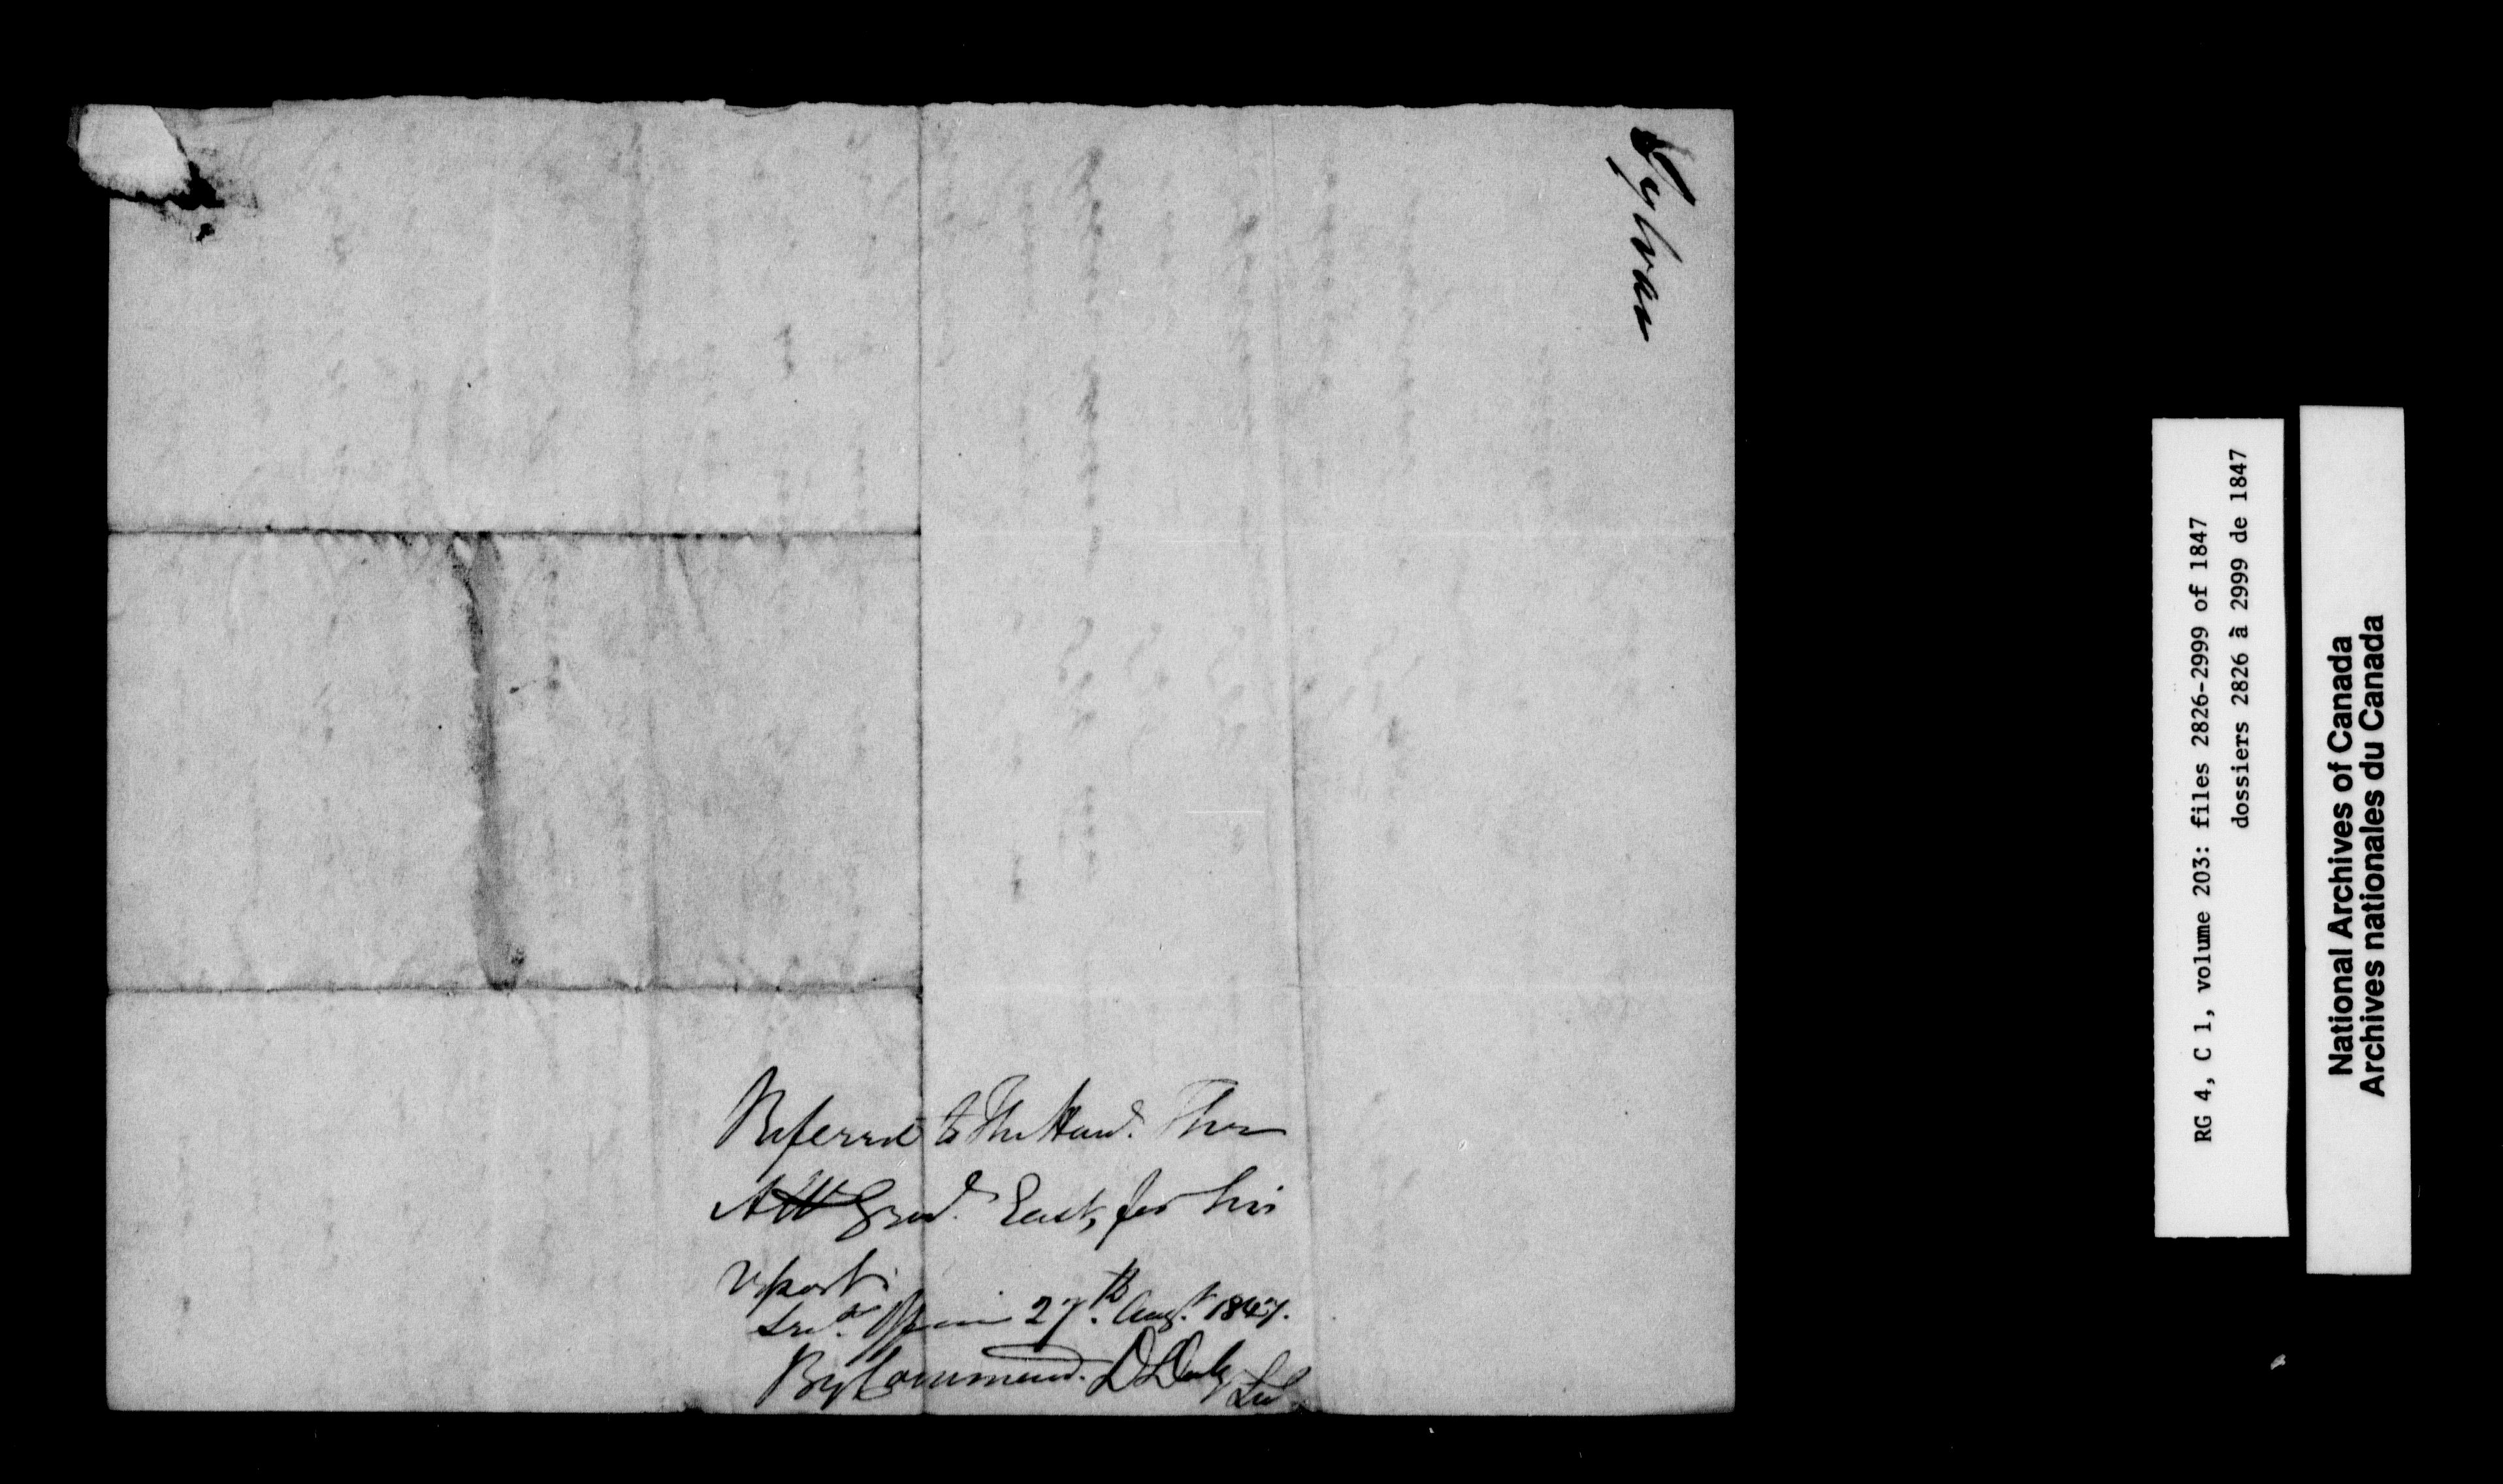 Sylvain
Referred to The Honl. The
Att Genl. East, for his
report.
Secys. Office 27th. Augt. 1847.
By Command. D Daly Sec
RG 4, C 1, volume 203: files 2826-2999 of 1847
dossiers 2826 à 2999 de 1847
National Archives of Canada
Archives nationales du Canada